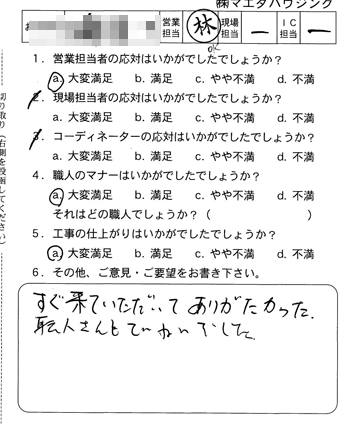 ㈱マエダハウジング
お 営業担当 林 現場担当 ー IC担当 ー
OK
1．営業担当者の応対はいかがでしたでしょうか？
a. 大変満足 b. 満足 c. やや不満 d. 不満
2．現場担当者の応対はいかがでしたでしょうか？
a. 大変満足 b. 満足 c. やや不満 d. 不満
3．コーディネーターの応対はいかがでしたでしょうか？
a. 大変満足 b. 満足 c. やや不満 d. 不満
4．職人のマナーはいかがでしたでしょうか？
a. 大変満足 b. 満足 c. やや不満 d. 不満
それはどの職人でしょうか？（ ）
5．工事の仕上がりはいかがでしたでしょうか？
a. 大変満足 b. 満足 c. やや不満 d. 不満
6．その他、ご意見・ご要望をお書き下さい。
すぐ来ていただいて ありがたかった.
職人さんもていねいでした
切り取り（右側を投函してください）